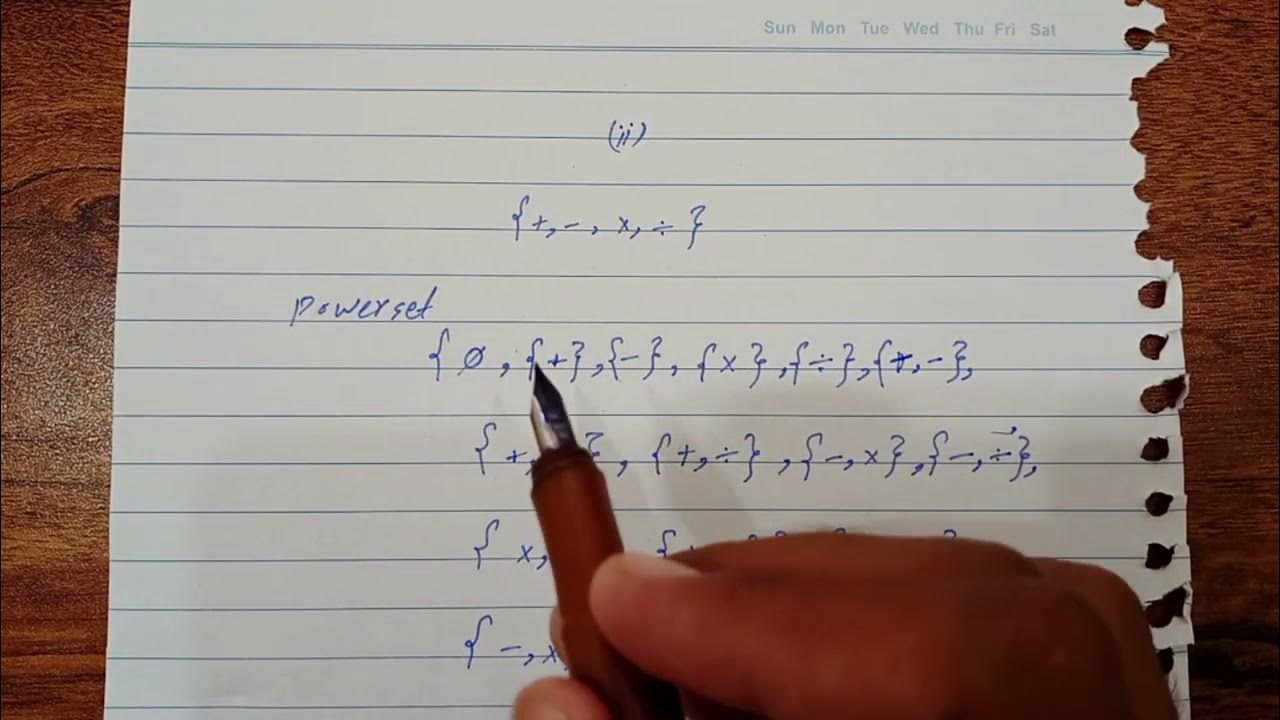 Sun Mon Tue Wed Thu Fri Sat
(ii)
{+, -, x, ÷}
powerset
{ ∅, {+}, {-}, {x}, {÷}, {+, -},
{+, }, {+, ÷}, {-, x}, {-, ÷},
{ x,
{ -, x